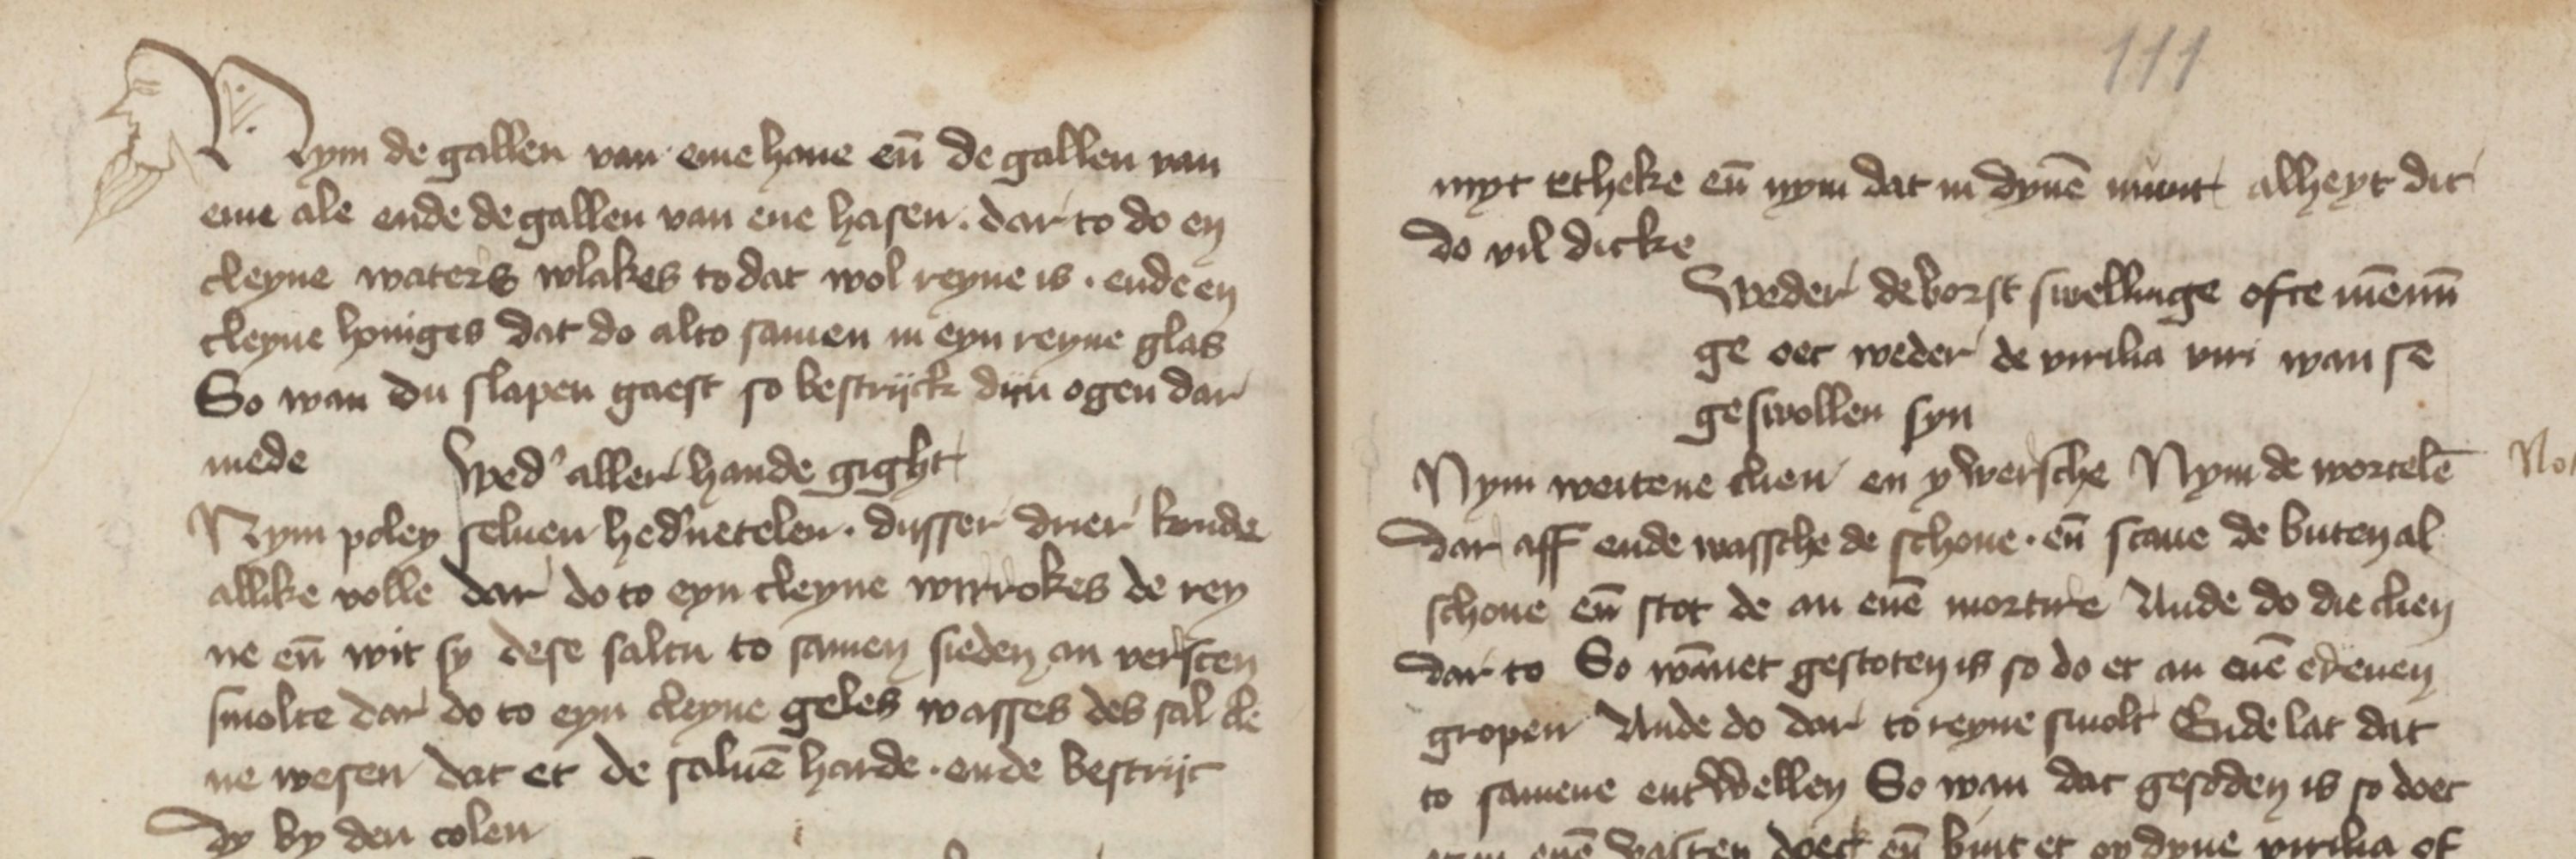 Nym de gallen van eme hane en̄ de gallen van
eme ale ende de gallen van ene hasen. dar to do en
cleyne waters wlakes to dat wol reyne is. ende en
cleyne honiges dat do alto samen in eyn reyne glas
So wan du slapen gaest so bestrijck dijn ogen dar
mede
Wed' aller hande gight
Nym poley seluen hed'netelen. dusser drier krude
allike volle dar do to eyn cleyne wirrokes de rey
ne en̄ wit sy dese saltu to samen sieden an versten
smolte dar do to eyn cleyne geles wasses des sal cle
ne wesen dat et de saluē harde. ende bestrijc
dy by den colen
111
myt etheke en̄ nym dat in dynē munt alheyt dit
do vil dicke
Weder de borst swellinge ofte mēnn̄
ge oec weder de virilia viri wan se
geswollen syn
Nym weitene clien en ywersche Nym de wortelē
No
dar aff ende wassche de schone. en̄ scaue de buten al
schone en̄ stot de an enē mortire Ande do die clien
dar to So wāner gestoten is so do et an enē erdenen
gropen Ande do dar to reyne smolt Ende lat dat
to samene entwellen So wan dat gesoden is so doet
et in enē vasten doeck en̄ bint et op dyne virilia of